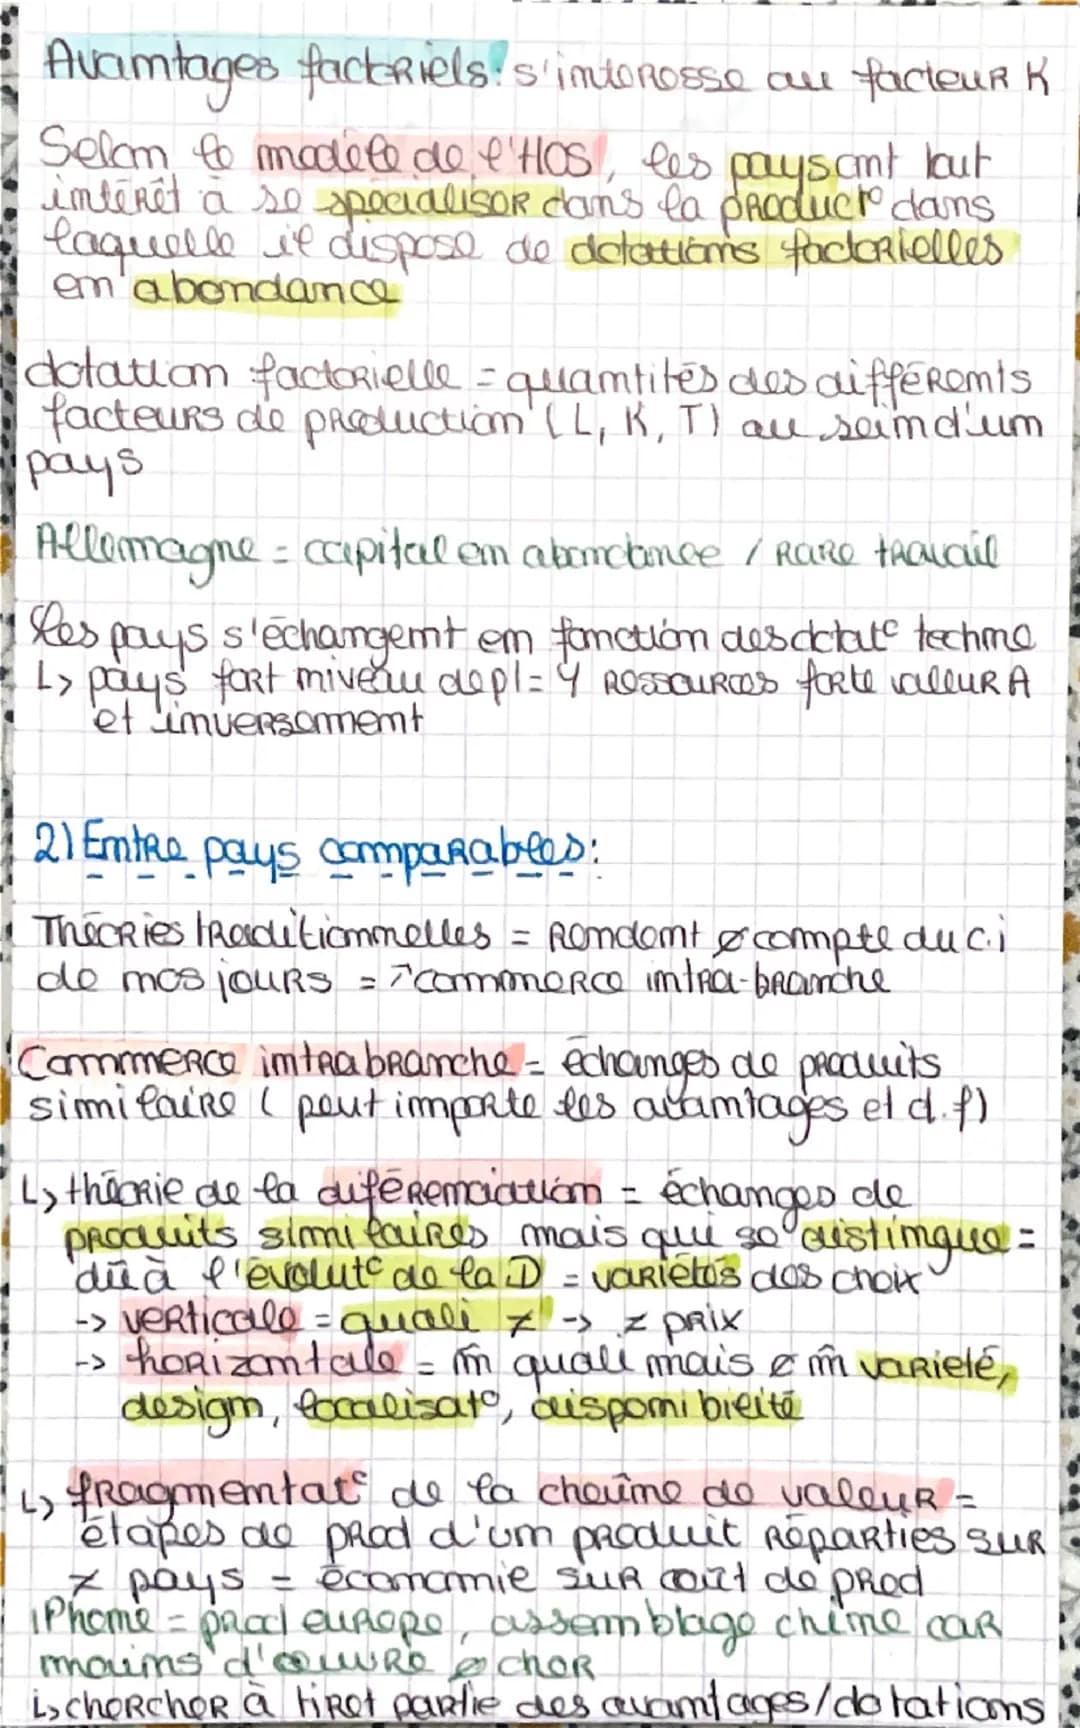 Avantages factoriels: s'intéresse au facteur K
Selon le modèle de l'HOS, les pays ont tout
intérêt à se spécialiser dans la product° dans
laquelle il dispose de dotations factorielles
en abondance
dotation factorielle = quantités des différents
facteurs de production (L, K, T) au sein d'un
pays
Allemagne = capital en abondance / rare travail
les pays s'échangent en fonction des dotat° techno
↳ pays fort niveau depl = y ressources forte valeur A
et inversement
2) Entre pays comparables:
Théories traditionnelles = rendent ø compte du c.i
de nos jours = ↗ commerce intra-branche
Commerce intrabranche = échanges de produits
similaire ( peut importe les avantages et d.f)
↳ théorie de la diférenciation = échanges de
produits similaires mais qui se distingue =
dû à l'évolut° de la D = variétés des choix
-> verticale = quali ≠ -> ≠ prix
-> horizontale = m̂ quali mais ø m̂ varieté,
design, localisat°, disponibilité
↳ fragmentat° de la chaîne de valeur =
étapes de prod d'un produit réparties sur
≠ pays = économie sur coût de prod
iPhone = prod europe, assemblage chine car
mains d'oeuvre ø cher
↳ chercher à tirer partie des avantages/dotations